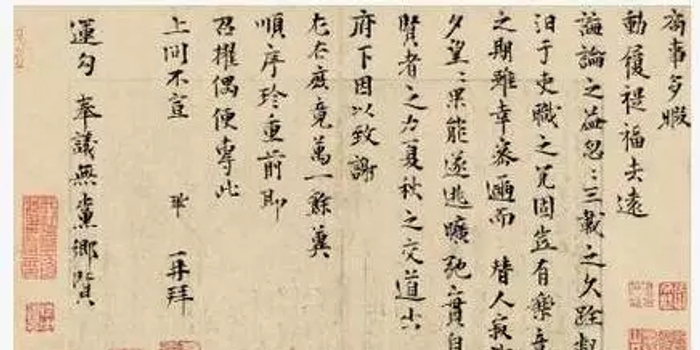 局事多暇
動履禔福去遠
誨論之益忽〻三載之久跧
汩于吏職之冗固豈有樂
之期雖幸密邇而替人寂
夕望〻果能遂逃曠弛實自
賢者之力夏秋之交道出
府下因以致謝
左右庶竟萬一餘冀
順序珍重前即
召擢偶便專此
上問不宣 鞏 再拜
運勾奉議無黨鄉賢